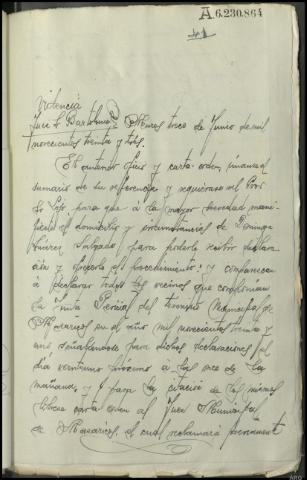 A.6.230.864
41
Providencia
Juez S. Bartolomé. Mieres trece de Junio de mil
novecientos treinta y tres.
El anterior oficio y carta orden, únanse al
sumario de su referencia y requiérase al Proc.
para que á la mayor brevedad mani-
fieste el domicilio y circunstancias de Dominga
Suarez Salgado para poderle recibir declara-
ción y el procedimiento; y comparezcan
á declarar todos los vecinos que componian
la Junta Pericial del termino Municipal de
en el año mil novecientos treinta y
uno señalandose para dichas declaraciones el
día veintiuno próximo a las once de la
mañana, y para la citación de los mismos
librese carta orden al Juez Municipal
de el cual reclamará